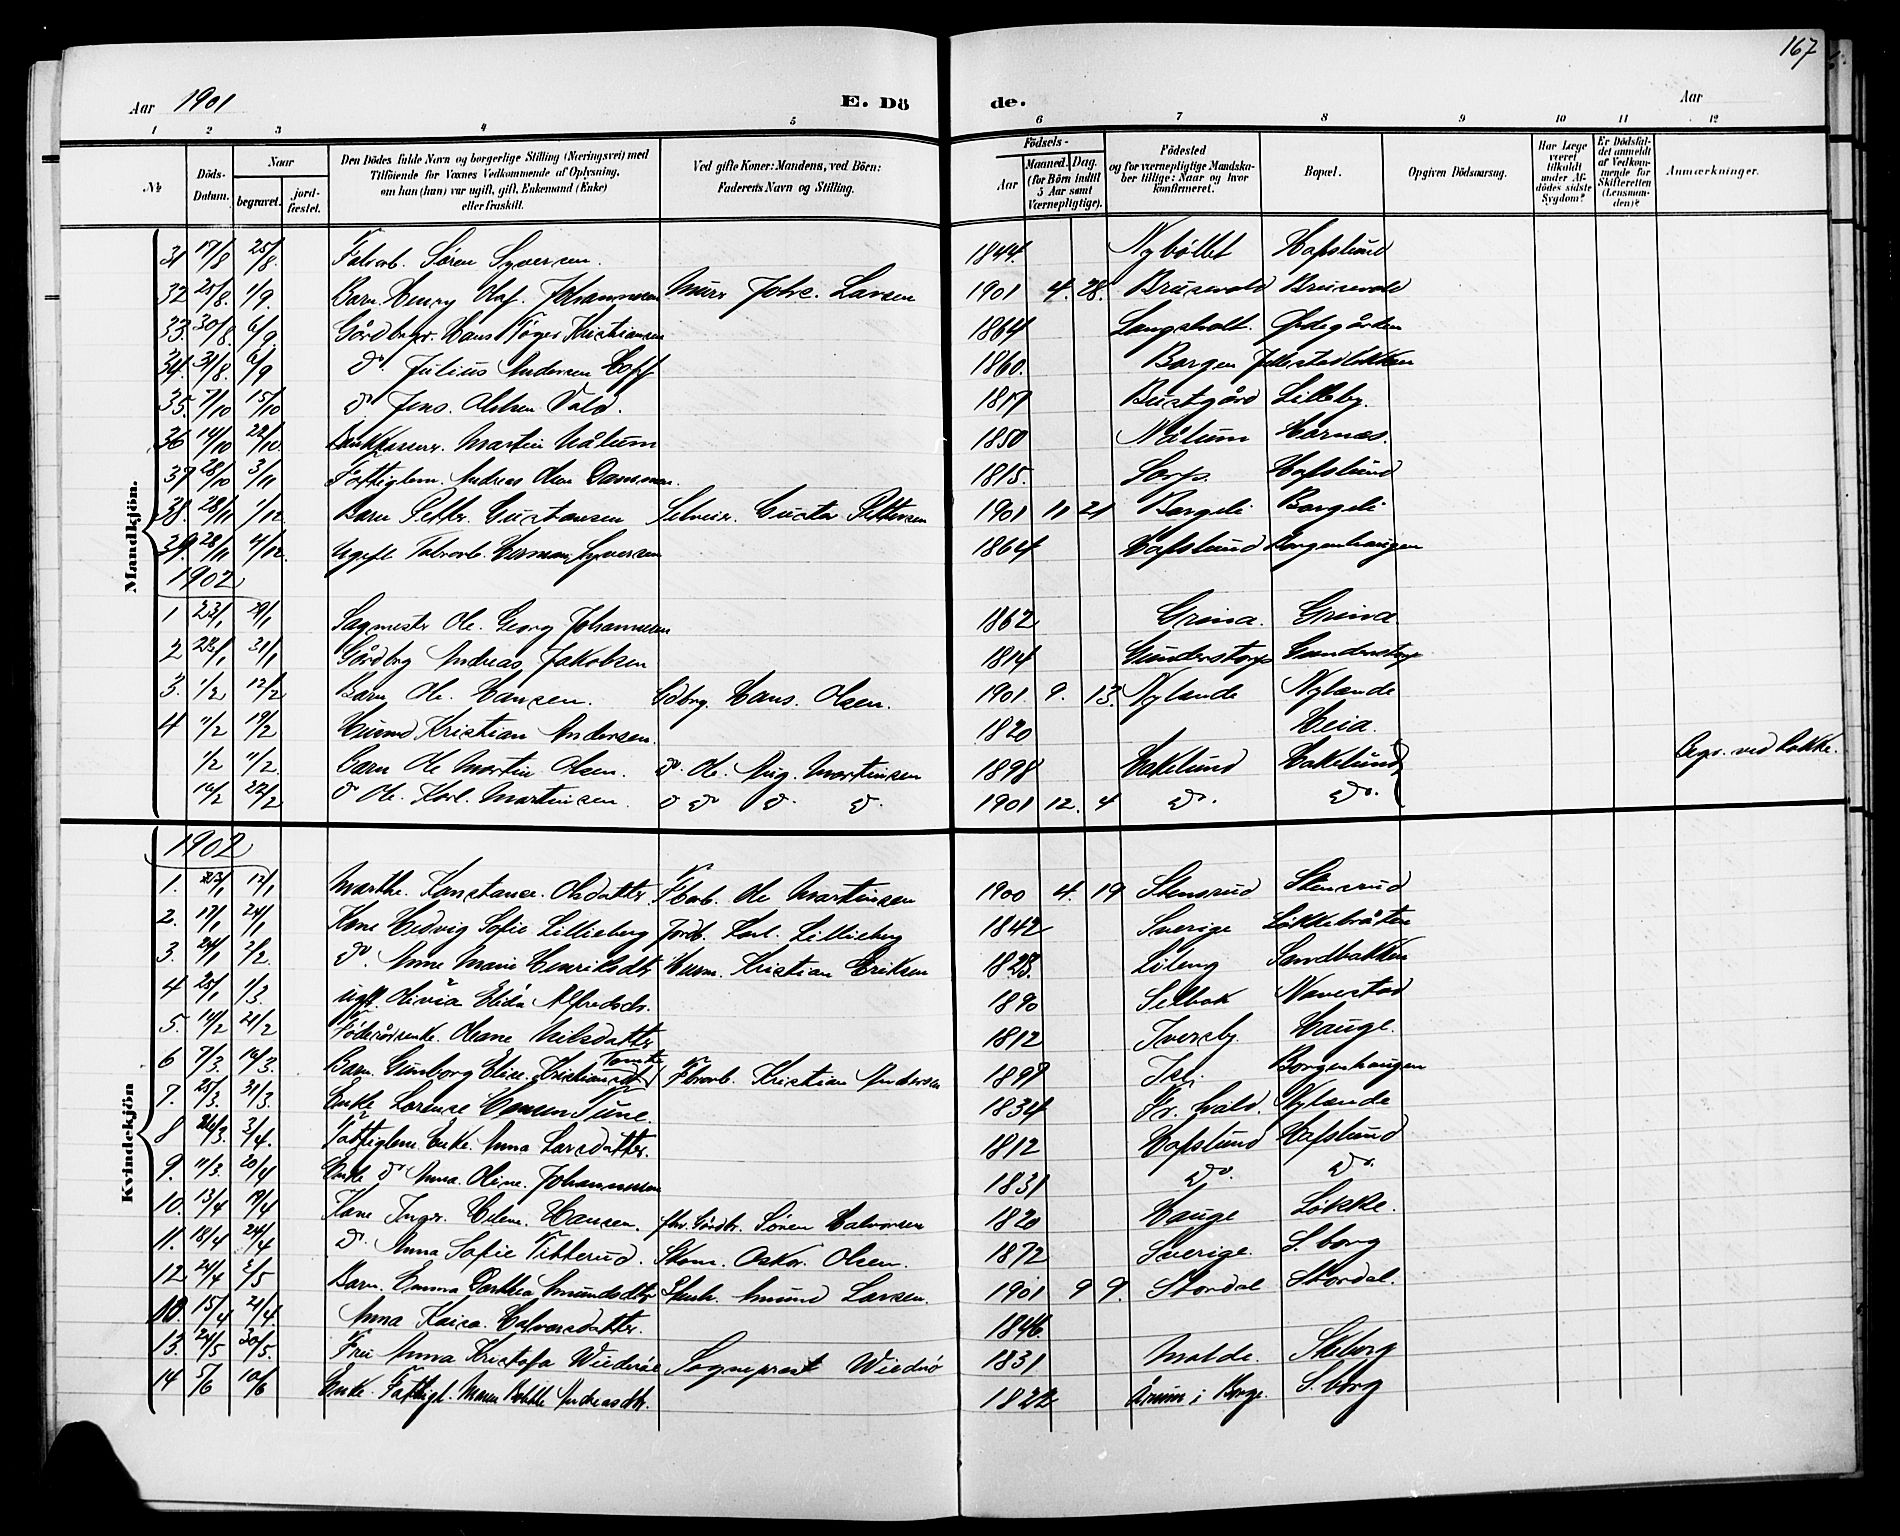 167
Aar 1901 E. Dö de. Aar
1 2 3 4 5 6 7 8 9 10 11 12
№ Döds-Datum. Naar begravet. jordfæstet. Den Dödes fulde Navn og borgerlige Stilling (Næringsvei) med Tilföiende for Voxnes Vedkommende af Oplysning, om han (hun) var ugift, gift, Enkemand (Enke) eller fraskilt. Ved gifte Koner: Mandens, ved Börn: Faderens Navn og Stilling. Födsels- Aar Maaned. Dag. (for Börn indtil 5 Aar samt Værnepligtige). Födested og for værnepligtige Mandskaber tillige: Naar og hvor konfirmeret. Bopæl. Opgiven Dödsaarsag. Har Læge været tilkaldt under Afdödes sidste Sygdom? Er Dödsfaldet anmeldt af Vedkommende for Skifteretten (Lensmanden)? Anmærkninger.
Mandkjön.
31 17/8 25/8. Søren Syversen. 1844. Nybøllet Hafslund
32 25/8. 1/9. Barn. Henry Olaf. Johannesen Murer Johs. Larsen 1901 4. 28. Brusevold Brusevold
33. 30/8. 6/9. Gårdbgr. Hans Tøger Kristiansen 1864 Langsholt. Ødegården
34. 31/8. 6/9 do. Julius Andersen Hoff 1860. Borgen
35. 7/10 15/10 do. Jens. Olsen Vald. 1817 Bustgård Lilleby.
36 14/10 22/10. Martin Nålum 1850 Nålum Hornæs.
37 28/10 3/11 Fattiglem. Andreas Olsen 1815. Sorp. Hafslund
38. 28/11 1/12. Barn Petter Gustavsen Selveier. Gustav Pettersen 1901 11 21 Borgeli Borgeli
39. 28/11 4/12. Ugift Fabrarb. Herman Syversen 1864 Hafslund Borgenhaugen
1902
1 23/1 29/1 Sagmester Ole. Georg Johannesen 1862 Grina. Grina
2 31/1 Gårdbrg Andreas Jakobsen 1814 Gunderstorp Gunderstorp
3. 1/2 12/2 Barn Ole. Hansen. Gdbrg. Hans. Olsen. 1901. 9. 13. Nylende Nylende
4 11/2 19/2 Husmd Kristian Andersen. 1820 Heia.
1/2 11/2. Barn Ole Martin Olsen. do. Ole. Aug. Martinsen 1898 Hakelund Hakelund Begr. ved Rokke.
16/2 22/2 do Ole. Karl. Martinsen. do do do. do. 1901 12. 4 do. do.
Kvindekjön
1902
1. 12/1 Marthe. Konstance. Olsdatter Fbarb. Ole Martinsen 1900 4. 19 Stensrud Stensrud
2. 17/1 24/1 Kone Hedvig Sofie Lillieberg Jordb. Karl. Lillieberg 1842 Sverige Løkkebråten
3. 24/1 2/2. do. Anne Marie Henriksdtr Husm. Kristian Eriksen 1828. Lileng Sandbakken
4 25/1 1/3. ugft. Olivia Elida Alfredsdr. 1890 Selbak Navestad
5. 14/2 21/2 Føderådsenke. Oleane Nilsdatter 1812 Iversby Hauge.
6 7/3. 16/3. Barn. Gunborg Elise. Kristiansdtr Fbrarb. Kristian Andersen 1899 Ise. Borgenhaugen
7. 25/3. 31/3. Enke Lorense Hansen Tune. 1834 Fr. hald. Nylende
8 3/4. Fattiglem Enke. Anna Larsdatter. 1812 Hafslund Hafslund
9. 11/3. 20/4 Enke do Anna. Oline. Johannesen 1831 do. do.
10. 13/4 19/4 Kone Inger. Helene. Hansen. Søren Halvorsen 1820 Hauge Løkke.
11. 18/4 24/4 do. Anna Sofie Titterud. Skom. Oskar. Olsen. 1872 Sverige. S. borg
12 24/4 2/5 Barn. Emma Dorthea Amundsdtr Amund Larsen. 1901 9 9. Stordal Stordal.
10. 15/4 21/4. Anna Kaisa. Halvorsdatter. 1846.
13. 24/5 30/5. Frue Anna Kristofa Wiederøe Sogneprest Wiederø 1831 Molde. Skiborg
14 5/6 10/6 Enke. Fattigl. Maren Andreasdtr. 1822 Årum i Borge. S. borg